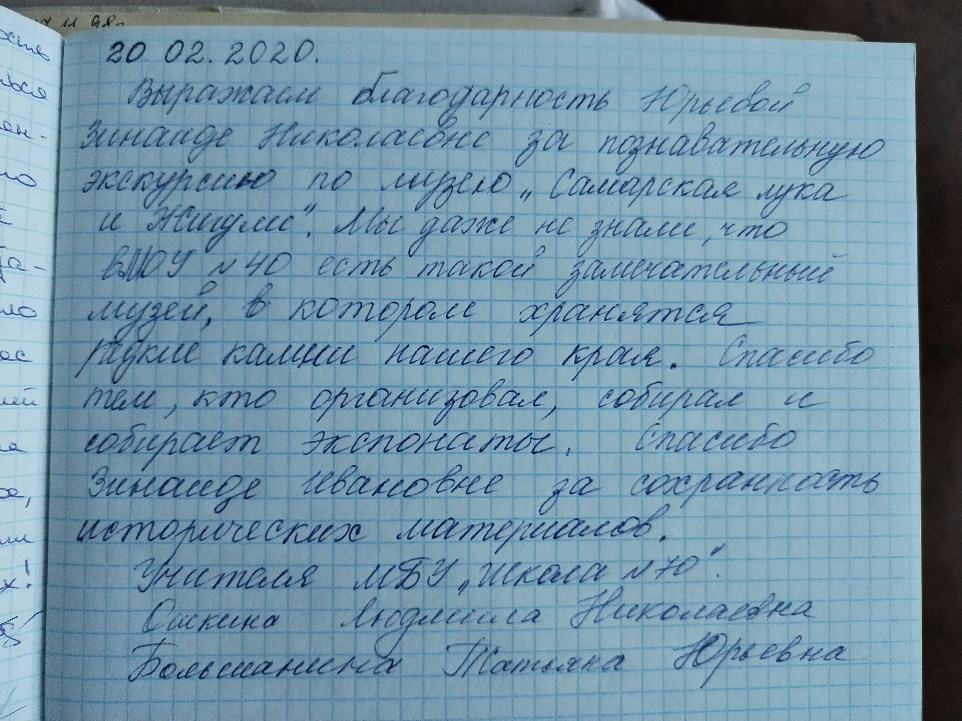 20 02. 2020.
Выражаем благодарность Юрьевой
Зинаиде Николаевне за познавательную
экскурсию по музею „Самарская лука
и Жигули". Мы даже не знали, что
в МОУ №40 есть такой замечательный
музей, в котором хранятся
редкие камни нашего края. Спасибо
тем, кто организовал, собирал и
собирает экспонаты. Спасибо
Зинаиде Ивановне за сохранность
исторических материалов.
Учителя МБУ „Школа №70".
Ошкина Людмила Николаевна
Татьяна Юрьевна